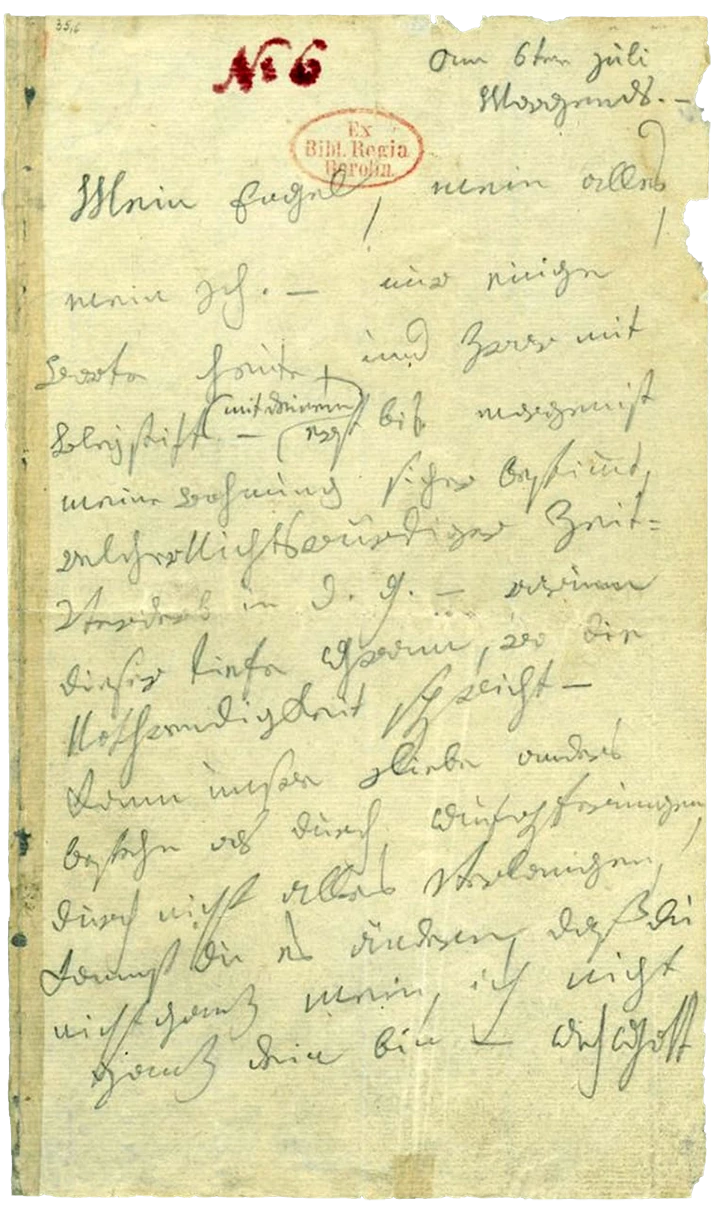 35,6
No 6
am 6ten Juli
Morgends. —
Ex
Bibl. Regia
Berolin.
Mein Engel, mein alles,
mein Ich. — nur einige
Worte heute, und zwar mit
Bleystift
(mit deinem)
— erst bis morgen ist
meine Wohnung sicher bestimt,
welcher Nichtswürdiger Zeit=
Verderb in d. g. — warum
dieser tiefe Gram, wo die
Nothwendigkeit spricht —
Kann unsre Liebe anders
bestehn als durch Aufopferungen,
durch nicht alles Verlangen,
kannst du es ändern, daß du
nicht ganz mein, ich nicht
ganz dein bin — Ach Gott